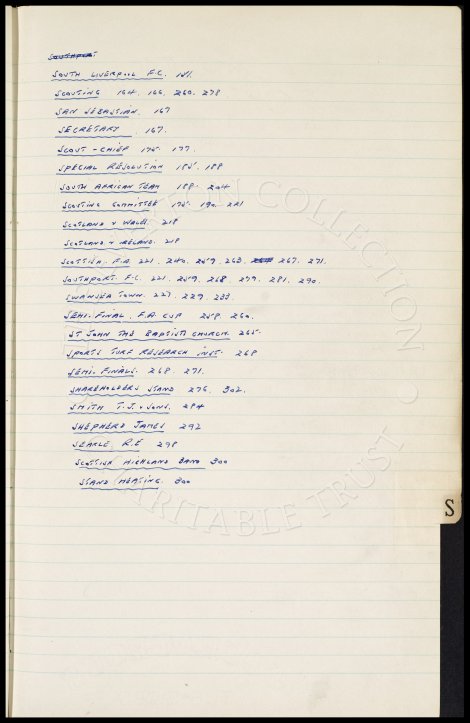 SOUTH LIVERPOOL F.C. 151.
SCOUTING 164, 166, 260, 278
SAN SEBASTIAN. 167
SECRETARY. 167.
SCOUT - CHIEF 175. 177.
SPECIAL RESOLUTION 185, 188
SOUTH AFRICAN TEAM 188. 204
SCOUTING COMMITTEE 175. 190. 221
SCOTLAND v WALES. 218
SCOTLAND v IRELAND. 218
SCOTTISH. F.A. 221, 240. 259, 263. 267. 271.
SOUTHPORT. F.C. 221, 259, 268, 279, 281, 290.
SWANSEA TOWN. 227. 229. 233.
SEMI-FINAL. F.A. CUP 258. 260.
ST JOHN THE BAPTISTS CHURCH. 265.
SPORTS TURF RESEARCH INST. 268
SEMI-FINALS. 268 271.
SHAREHOLDERS STAND 276, 302.
SMITH T.J. & SONS. 284
SHEPHERD JAMES 292
SEARLE, R.E 298
SCOTTISH HIGHLAND BAND 300
STAND HEATING. 300
S
COLLECTION
CHARITABLE TRUST